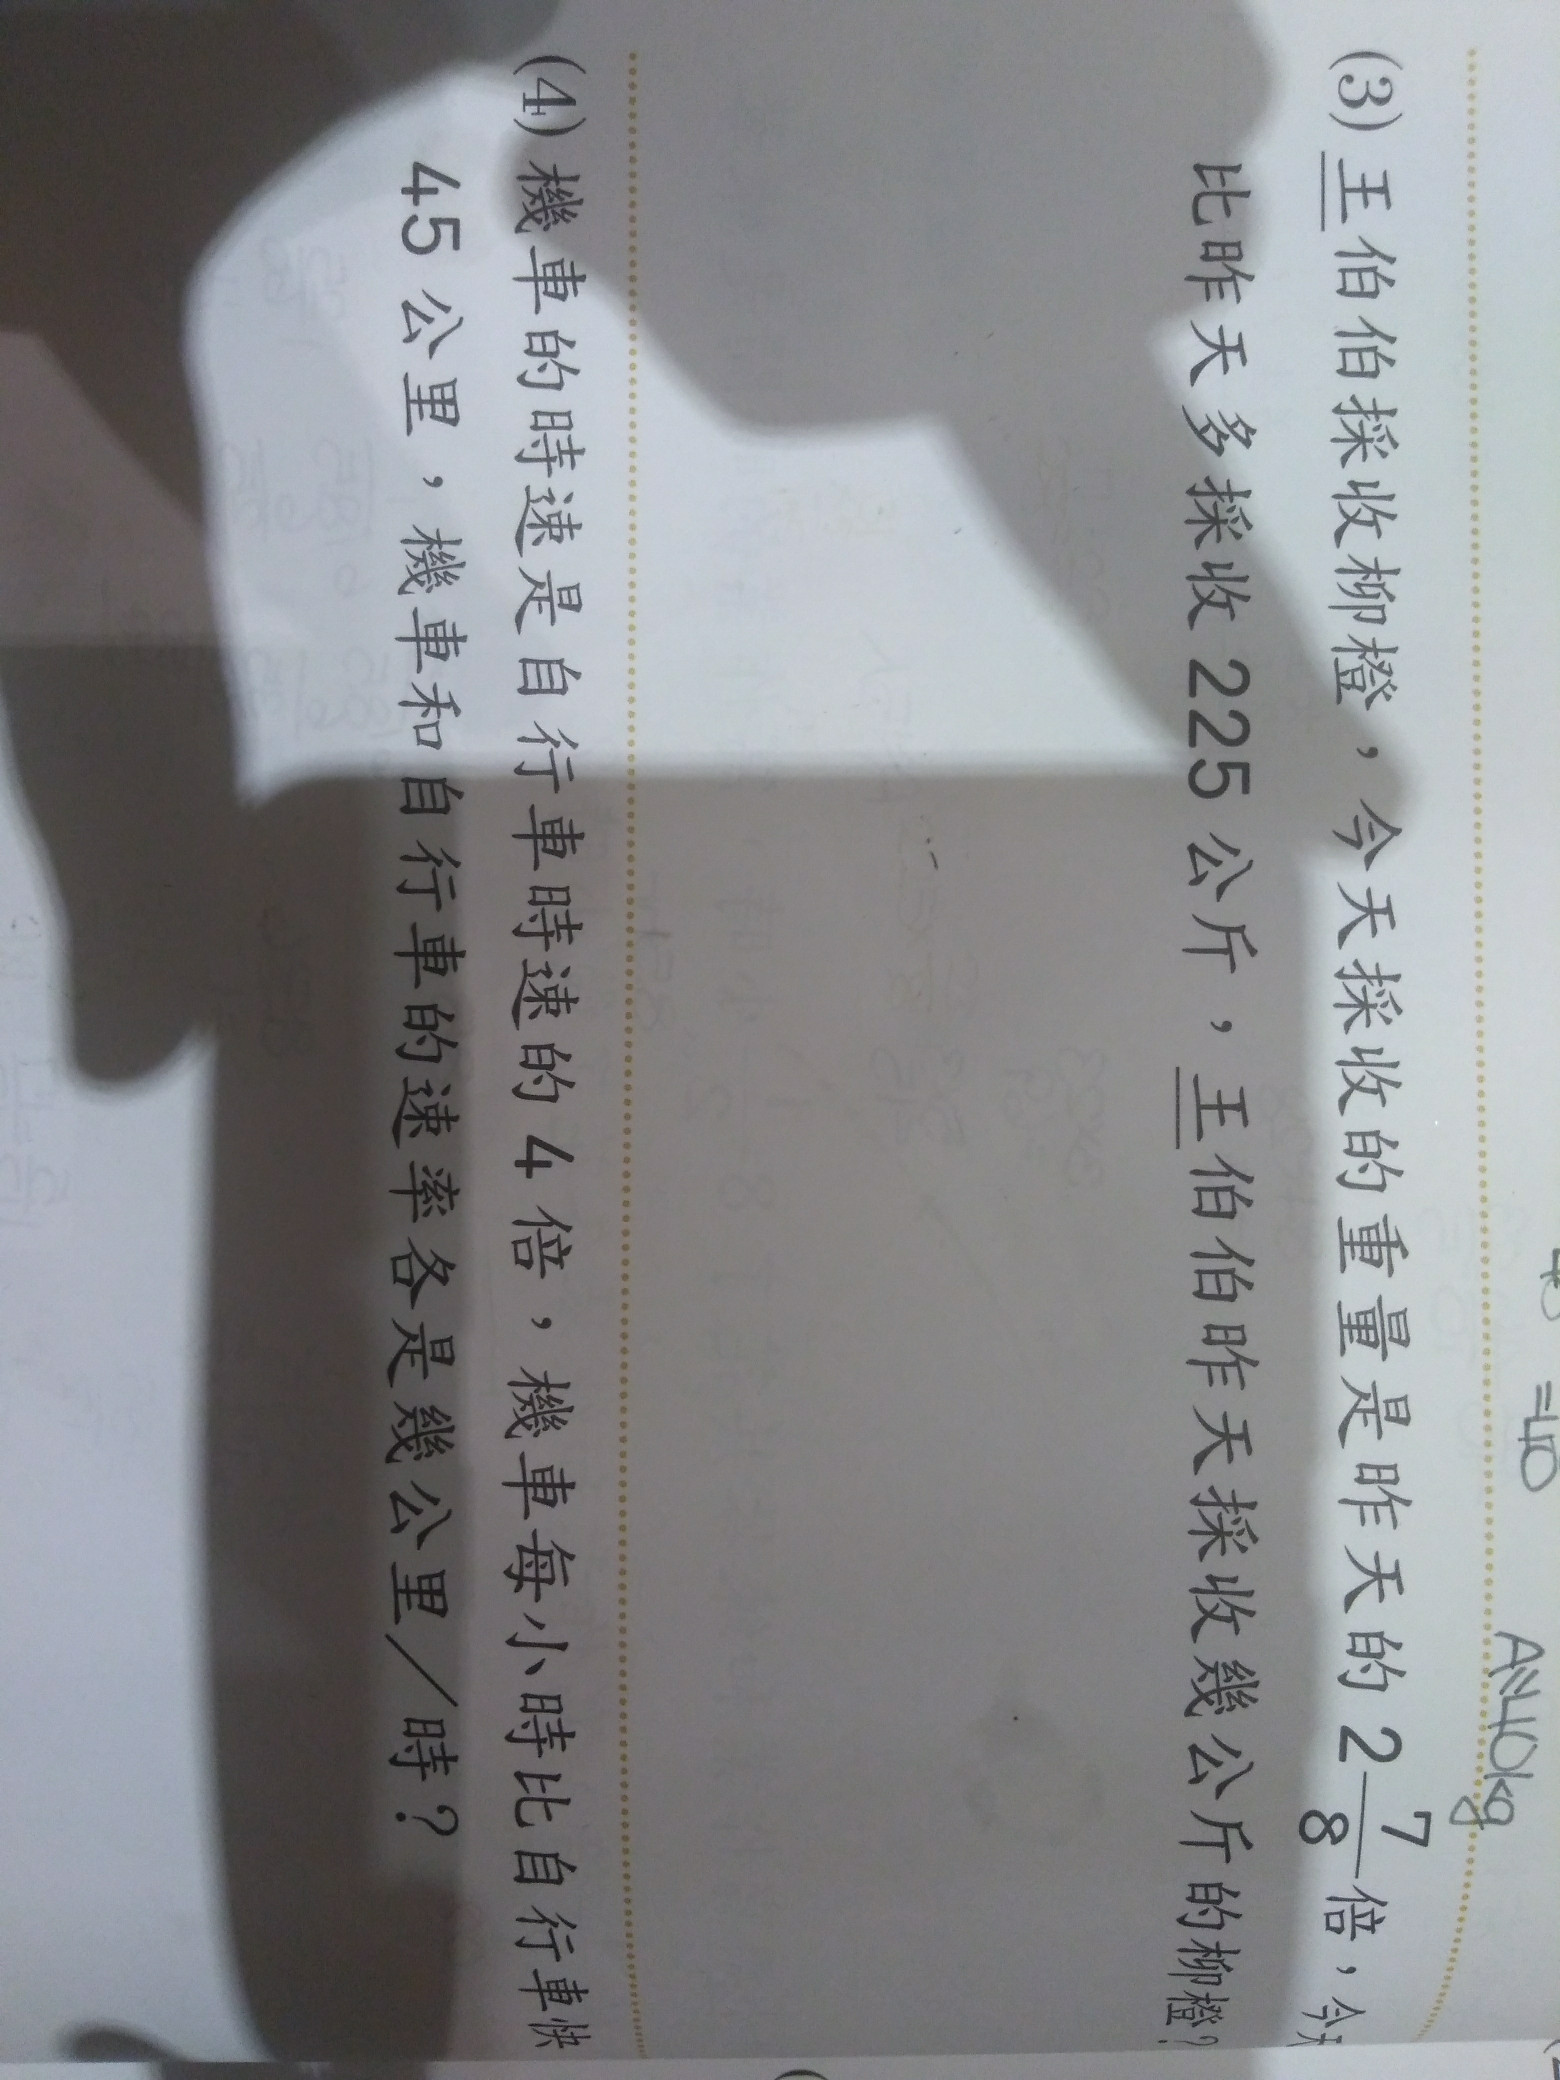 =40
A:40kg
(3) 王伯伯採收柳橙，今天採收的重量是昨天的 2 7/8 倍，今天
比昨天多採收 225 公斤，王伯伯昨天採收幾公斤的柳橙？
(4) 機車的時速是自行車時速的 4 倍，機車每小時比自行車快
45 公里，機車和自行車的速率各是幾公里／時？